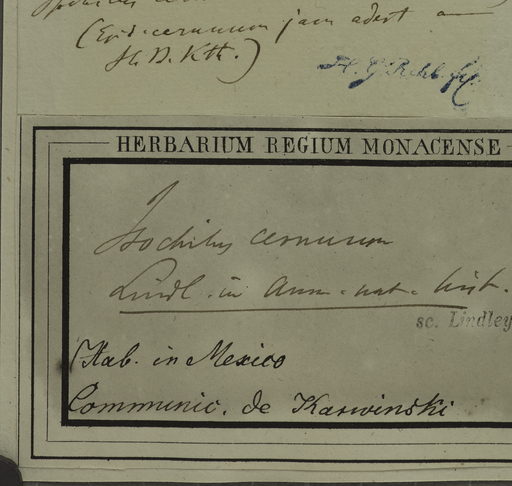 (Epid. cernuum jam adest a
H. B. Kth.)
H. G. Rchb. fil.
HERBARIUM REGIUM MONACENSE
Isochilus cernuum
Lindl. in Ann. nat. hist.
sc. Lindley
Hab. in Mexico
Communic. de Karwinski